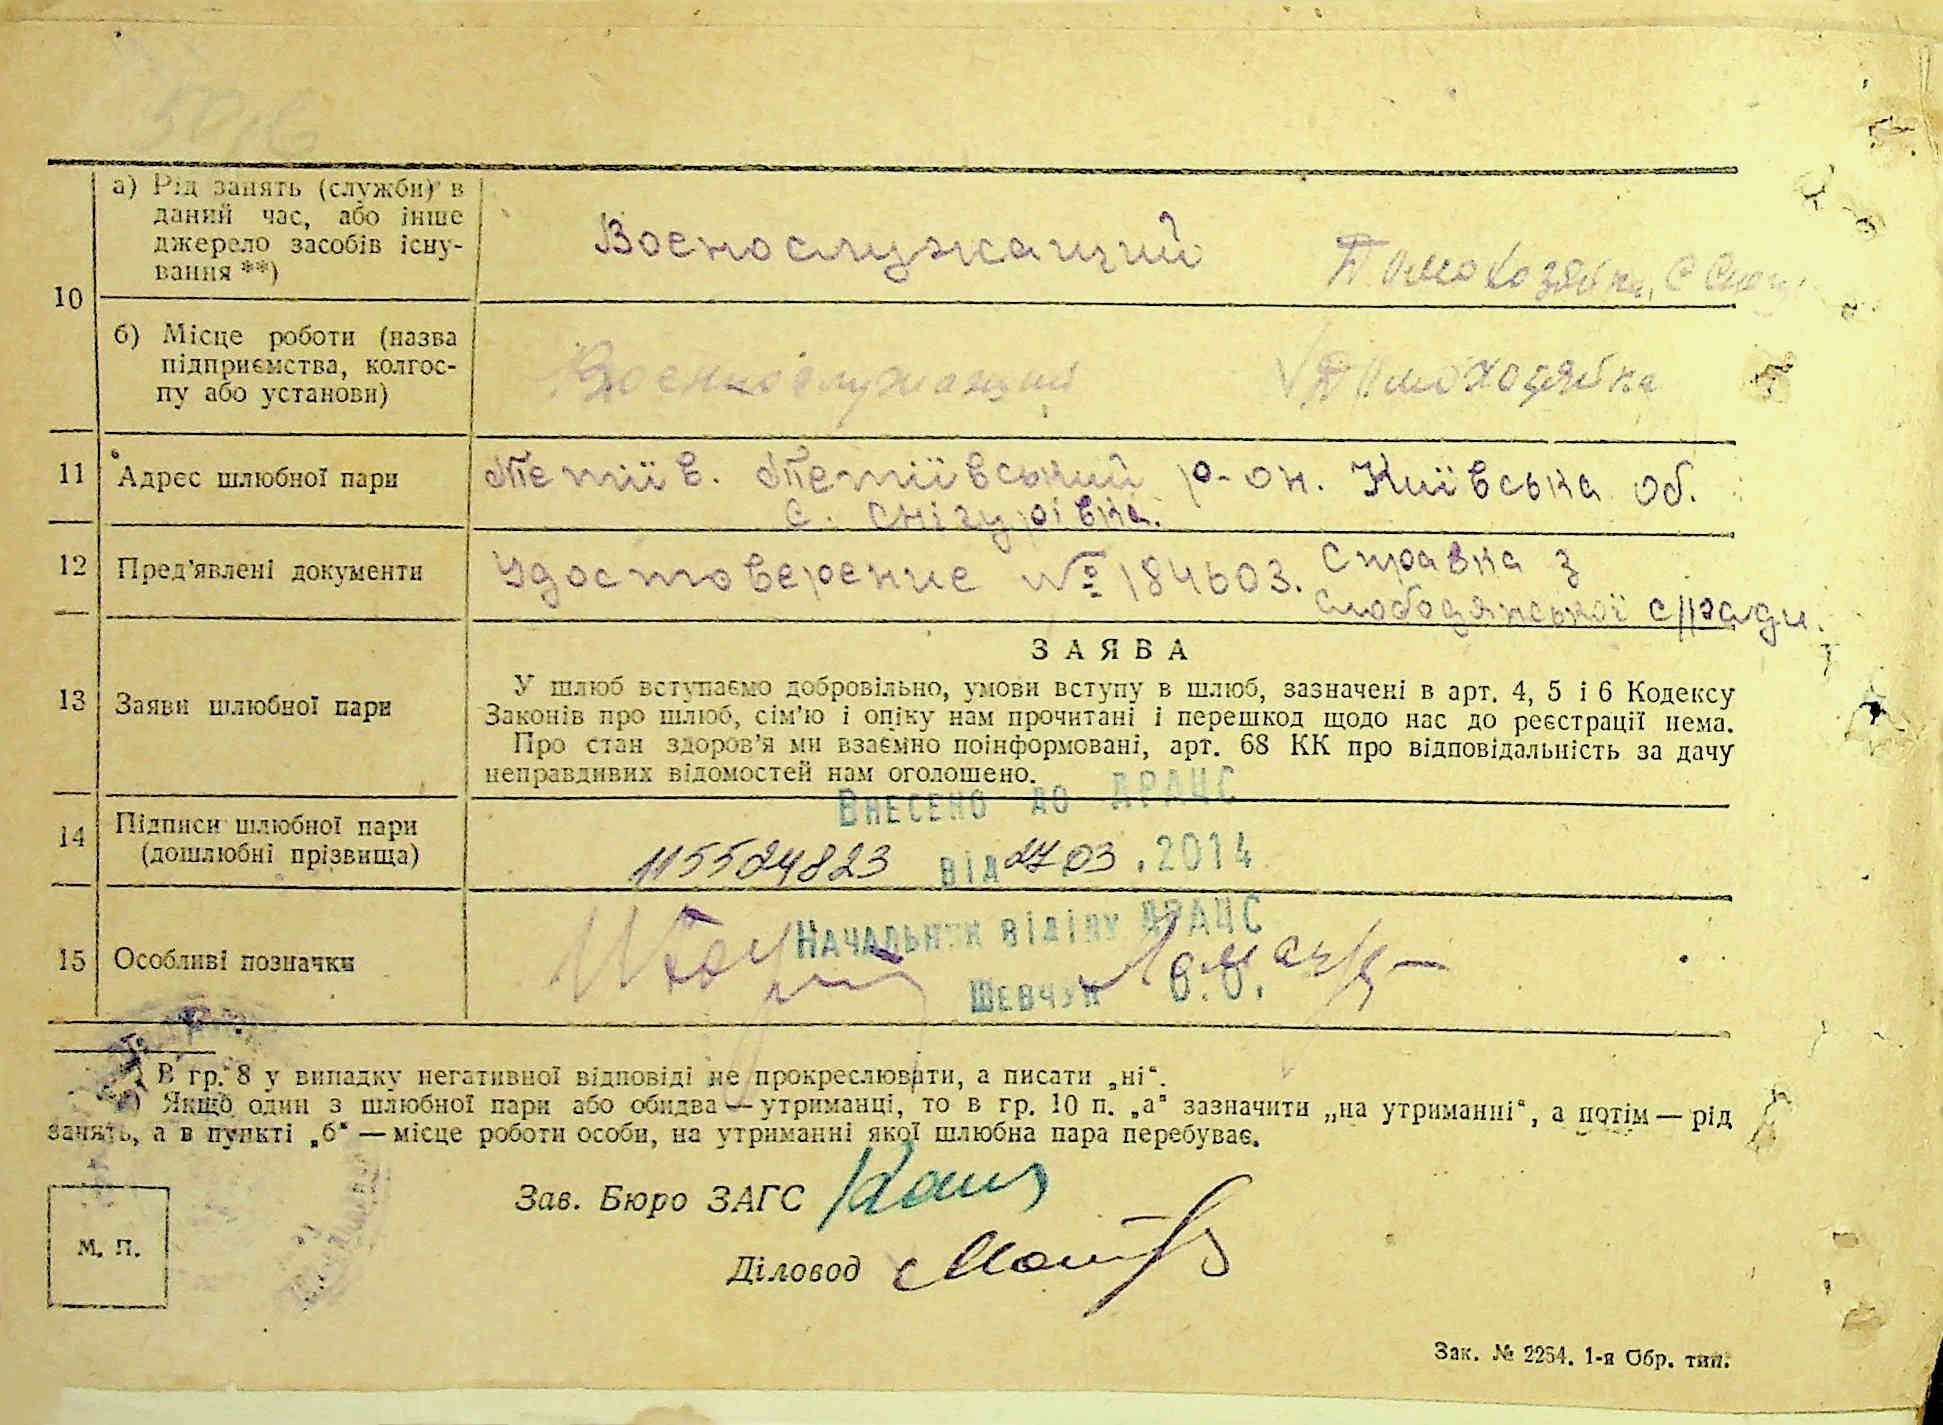 а) Рід занять (служби) в
даний час, або інше
джерело засобів існу-
вання **)
Воєнослужащий
Домохозяйка,
10
б) Місце роботи (назва
підприємства, колгос-
пу або установи)
Военнослужащий
Домохозяйка
11 Адрес шлюбної пари
Тетіїв. Тетіївський р-он. Київська об.
с. Снігурівка.
12 Пред’явлені документи
Удостоверение № 184603. Справка з
слободянської с/ради.
ЗАЯВА
13 Заяви шлюбної пари
У шлюб вступаємо добровільно, умови вступу в шлюб, зазначені в арт. 4, 5 і 6 Кодексу
Законів про шлюб, сім’ю і опіку нам прочитані і перешкод щодо нас до реєстрації нема.
Про стан здоров’я ми взаємно поінформовані, арт. 68 КК про відповідальність за дачу
неправдивих відомостей нам оголошено.
Внесено до ДРАЦС
14 Підписи шлюбної пари
(дошлюбні прізвища)
115524823 від 27.03.2014
Начальник відділу ДРАЦС
15 Особливі позначки
Шевчук О.О.
В гр. 8 у випадку негативної відповіді не прокреслювати, а писати „ні“.
) Якщо один з шлюбної пари або обидва — утриманці, то в гр. 10 п. „а“ зазначити „на утриманні“, а потім — рід
занять, а в пункті „б“ — місце роботи особи, на утриманні якої шлюбна пара перебуває.
Зав. Бюро ЗАГС
М. П.
Діловод
Зак. № 2264. 1-я Обр. тип.